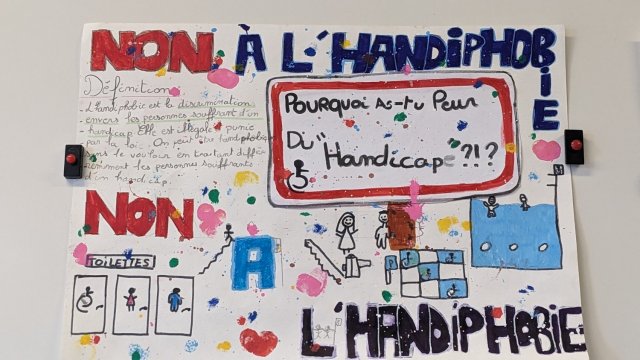 NON À L'HANDIPHOBIE
Définition
- L'Handiphobie est la discrimination
envers les personnes souffrant d'un
handicap. Elle est illégale et punie
par la loi. On peut être handiphobe
sans le vouloir en traitant différ-
emment les personnes souffrants
d'un handicap.
POURQUOI as-tu Peur
Du "Handicape"?!?
NON
TOILETTES
À
L'HANDIPHOBIE